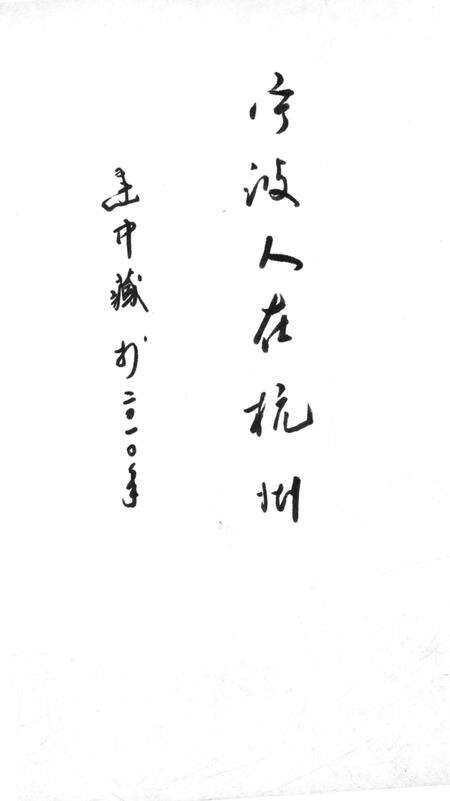 宁波人在杭州
建中藏书二〇一〇年